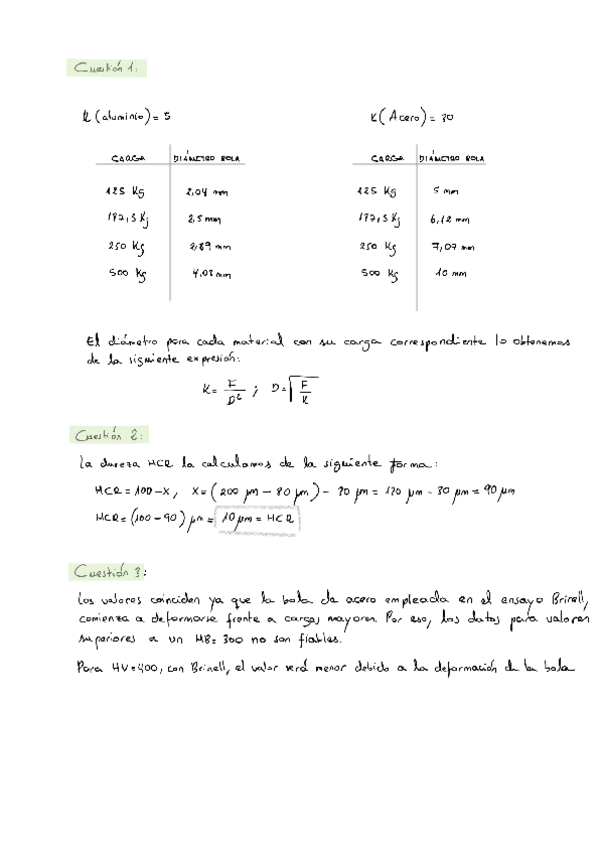 Cuestión 1:
K (aluminio) = 5
CARGA DIÁMETRO BOLA
125 Kg 2,04 mm
187,5 Kg 2,5 mm
250 Kg 2,89 mm
500 Kg 4,08 mm
K (Acero) = 30
CARGA DIÁMETRO BOLA
125 Kg 5 mm
187,5 Kg 6,12 mm
250 Kg 7,07 mm
500 Kg 10 mm
El diámetro para cada material con su carga correspondiente lo obtenemos
de la siguiente expresión:
K = F/D² ; D = √(F/K)
Cuestión 2:
La dureza HCR la calculamos de la siguiente forma:
HCR = 100 - X, X = (200 µm - 80 µm) - 30 µm = 120 µm - 30 µm = 90 µm
HCR = (100 - 90) µm = 10 µm = HCR
Cuestión 3:
Los valores coinciden ya que la bola de acero empleada en el ensayo Brinell,
comienza a deformarse frente a cargas mayores. Por eso, los datos para valores
superiores a un HB = 300 no son fiables.
Para HV = 400, con Brinell, el valor será menor debido a la deformación de la bola